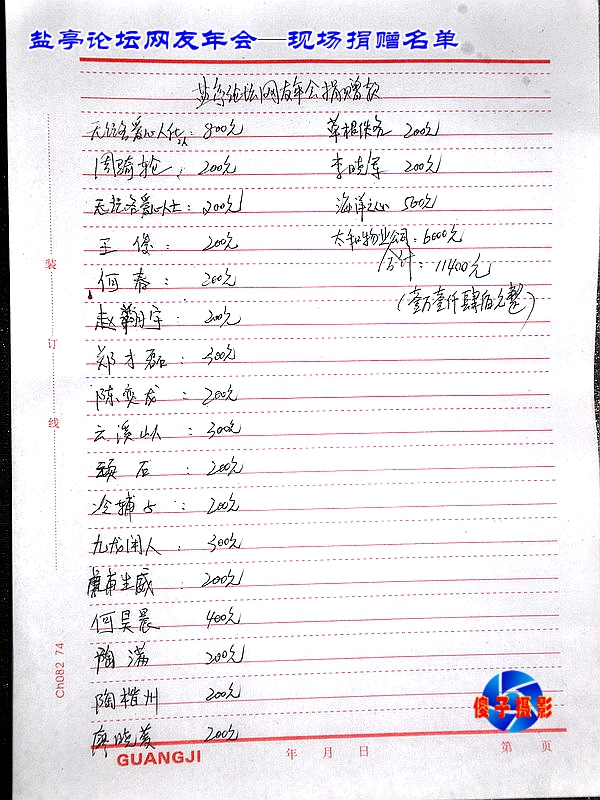 盐亭论坛网友年会—现场捐赠名单
盐亭论坛网友年会捐赠款
无名爱心人仕: 800元
周骑轮: 200元
无名爱心人士: 200元
王俊: 200元
何春: 200元
赵翱宇: 200元
郑才磊: 300元
陈奕龙: 200元
云溪山人: 300元
顽石: 200元
冷辅占: 200元
九龙闲人: 300元
生威: 200元
何昊晨 400元
陶满 200元
陶楷州 200元
廖晓英 200元
草根佚名 200元
李晓军 200元
海洋之心 500元
太和物业公司: 6000元
合计: 11400元
(壹万壹仟肆佰元整)
装
订
线
Ch082 74
GUANGJI
年 月 日
第 页
傻子摄影